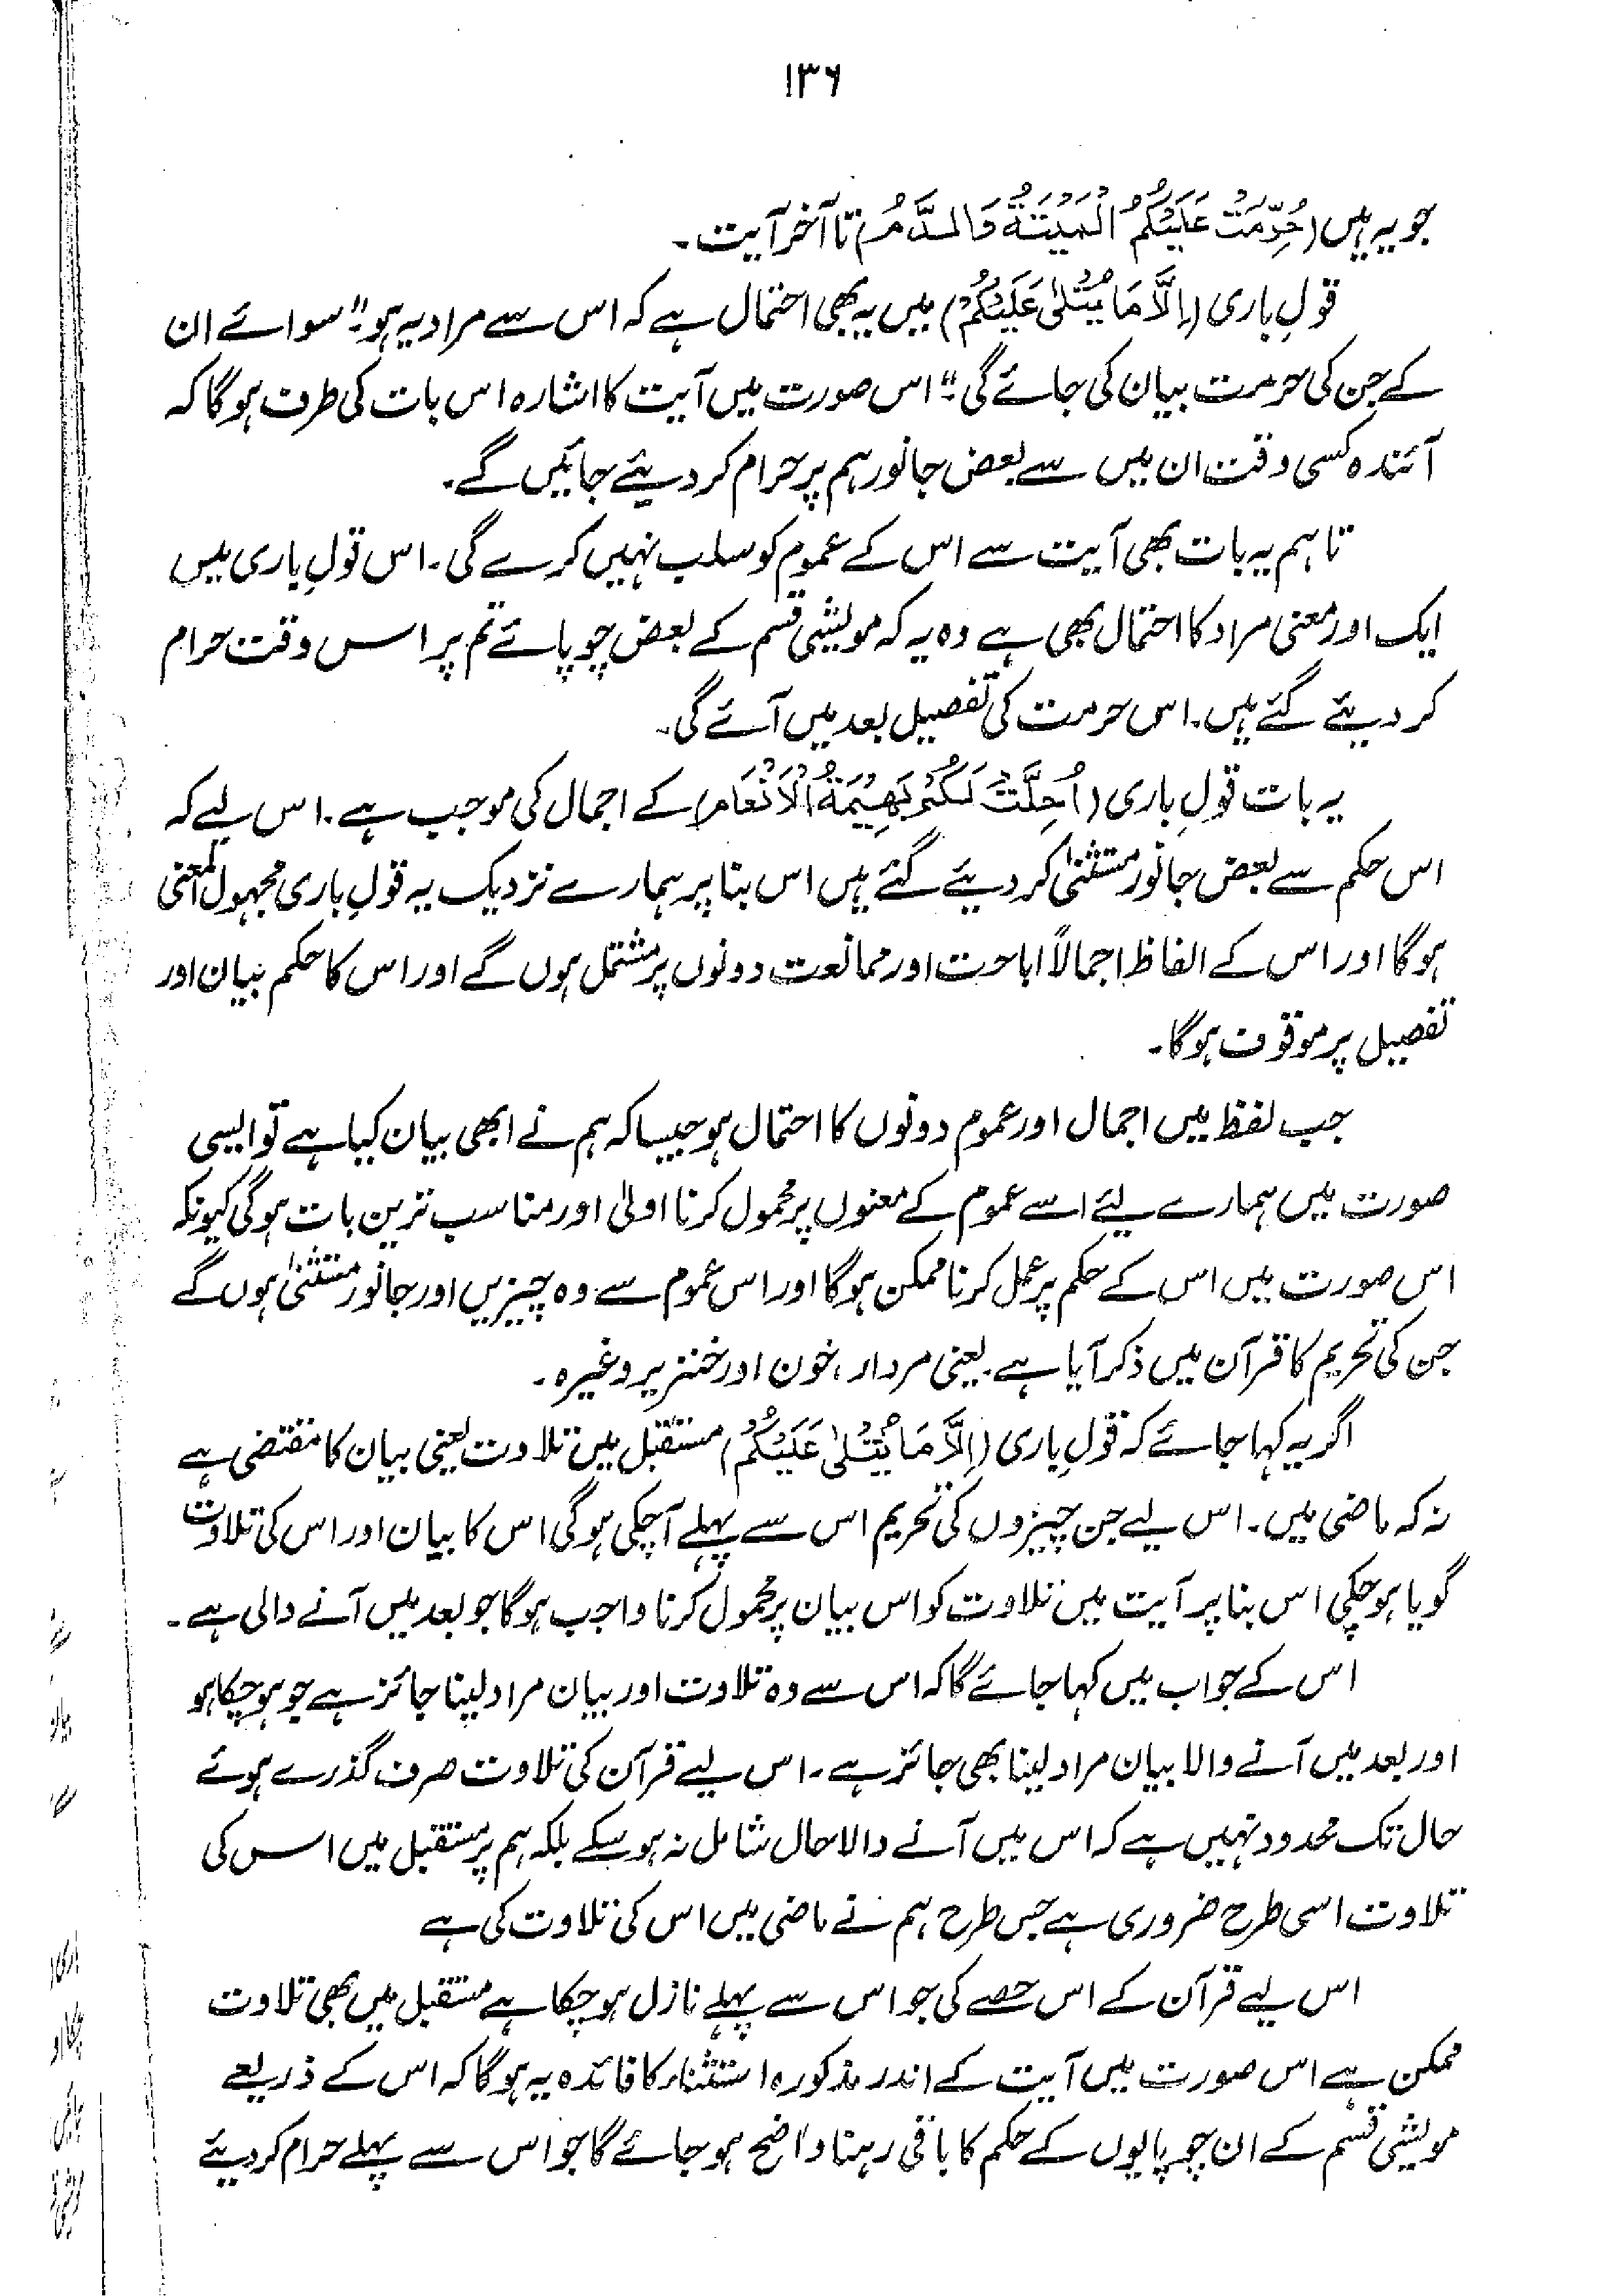 ۱۳۶
جو یہ ہیں (حُرِّمَتْ عَلَيْكُمُ الْمَيْتَةُ وَالدَّمُ) تا آخر آیت۔
قولِ باری (اِلَّا مَا يُتْلٰى عَلَيْكُمْ) میں یہ بھی احتمال ہے کہ اس سے مراد یہ ہو: "سوائے ان
کے جن کی حرمت بیان کی جائے گی" اس صورت میں آیت کا اشارہ اس بات کی طرف ہوگا کہ
آئندہ کسی وقت ان میں سے بعض جانور ہم پر حرام کر دیئے جائیں گے۔
تاہم یہ بات بھی آیت سے اس کے عموم کو سلب نہیں کرے گی۔ اس قولِ باری میں
ایک اور معنی مراد کا احتمال بھی ہے وہ یہ کہ مویشی قسم کے بعض چوپائے تم پر اس وقت حرام
کر دیئے گئے ہیں۔ اس حرمت کی تفصیل بعد میں آئے گی۔
یہ بات قولِ باری (اُحِلَّتْ لَكُمْ بَهِيْمَةُ الْاَنْعَامِ) کے اجمال کی موجب ہے۔ اس لیے کہ
اس حکم سے بعض جانور مستثنیٰ کر دیئے گئے ہیں اس بنا پر ہمارے نزدیک یہ قولِ باری مجہول المعنی
ہوگا اور اس کے الفاظ اجمالاً اباحت اور ممانعت دونوں پر مشتمل ہوں گے اور اس کا حکم بیان اور
تفصیل پر موقوف ہوگا۔
جب لفظ میں اجمال اور عموم دونوں کا احتمال ہو جیسا کہ ہم نے ابھی بیان کیا ہے تو ایسی
صورت میں ہمارے لئے اسے عموم کے معنوں پر محمول کرنا اولیٰ اور مناسب ترین بات ہوگی کیونکہ
اس صورت میں اس کے حکم پر عمل کرنا ممکن ہوگا اور اس عموم سے وہ چیزیں اور جانور مستثنیٰ ہوں گے
جن کی تحریم کا قرآن میں ذکر آیا ہے۔ یعنی مردار، خون اور خنزیر وغیرہ۔
اگر یہ کہا جائے کہ قولِ باری (اِلَّا مَا يُتْلٰى عَلَيْكُمْ) مستقبل میں تلاوت یعنی بیان کا مقتضی ہے
نہ کہ ماضی میں۔ اس لیے جن چیزوں کی تحریم اس سے پہلے آچکی ہوگی اس کا بیان اور اس کی تلاوت
گویا ہو چکی اس بنا پر آیت میں تلاوت کو اس بیان پر محمول کرنا واجب ہوگا جو بعد میں آنے والی ہے۔
اس کے جواب میں کہا جائے گا کہ اس سے وہ تلاوت اور بیان مراد لینا جائز ہے جو ہو چکا ہو
اور بعد میں آنے والا بیان مراد لینا بھی جائز ہے۔ اس لیے قرآن کی تلاوت صرف گذرے ہوئے
حال تک محدود نہیں ہے کہ اس میں آنے والا حال شامل نہ ہو سکے بلکہ ہم پر مستقبل میں اس کی
تلاوت اسی طرح ضروری ہے جس طرح ہم نے ماضی میں اس کی تلاوت کی ہے
اس لیے قرآن کے اس حصے کی جو اس سے پہلے نازل ہو چکا ہے مستقبل میں بھی تلاوت
ممکن ہے اس صورت میں آیت کے اندر مذکورہ استثناء کا فائدہ یہ ہوگا کہ اس کے ذریعے
مویشی قسم کے ان چوپایوں کے حکم کا باقی رہنا واضح ہو جائے گا جو اس سے پہلے حرام کر دیئے